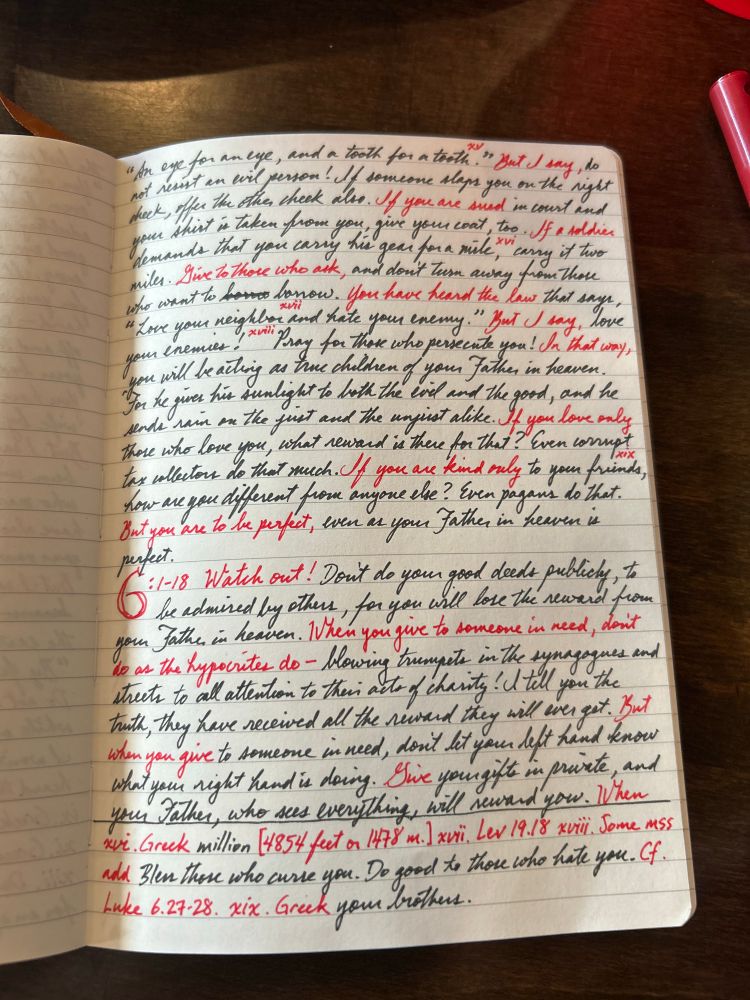 "An eye for an eye, and a tooth for a tooth.xv" But I say, do
not resist an evil person! If someone slaps you on the right
cheek, offer the other cheek also. If you are sued in court and
your shirt is taken from you, give your coat, too. If a soldier
demands that you carry his gear for a mile,xvi carry it two
miles. Give to those who ask, and don't turn away from those
who want to borrow. You have heard the law that says,
"Love your neighborxvii and hate your enemy." But I say, love
your enemies!xviii Pray for those who persecute you! In that way,
you will be acting as true children of your Father in heaven.
For he gives his sunlight to both the evil and the good, and he
sends rain on the just and the unjust alike. If you love only
those who love you, what reward is there for that? Even corrupt
tax collectors do that much. If you are kind only to your friends,xix
how are you different from anyone else? Even pagans do that.
But you are to be perfect, even as your Father in heaven is
perfect.
6:1-18 Watch out! Don't do your good deeds publicly, to
be admired by others, for you will lose the reward from
your Father in heaven. When you give to someone in need, don't
do as the hypocrites do – blowing trumpets in the synagogues and
streets to call attention to their acts of charity! I tell you the
truth, they have received all the reward they will ever get. But
when you give to someone in need, don't let your left hand know
what your right hand is doing. Give your gifts in private, and
your Father, who sees everything, will reward you. When
xvi. Greek million [4854 feet or 1478 m.] xvii. Lev 19.18 xviii. Some mss
add Bless those who curse you. Do good to those who hate you. Cf.
Luke 6.27-28. xix. Greek your brothers.